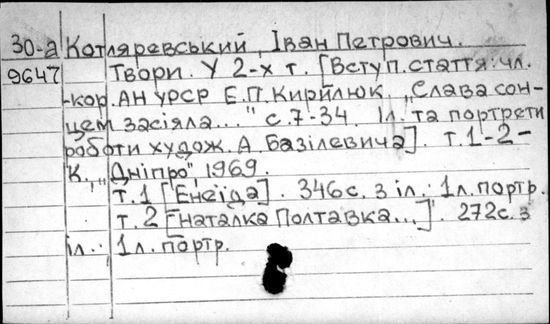 30-а Котляревський, Іван Петрович.
9647 Твори. У 2-х т. [Вступ. стаття: чл.
-кор. АН УРСР Е.П. Кирилюк. „Слава сон-
цем засіяла..." с. 7-34. Іл. та портрети
роботи худож. А. Базілевича]. т. 1-2-
К., „Дніпро" 1969.
т. 1 [Енеїда]. 346 с. з іл.: 1 л. портр.
т. 2 [Наталка Полтавка...]. 272 с. з
іл.: 1 л. портр.